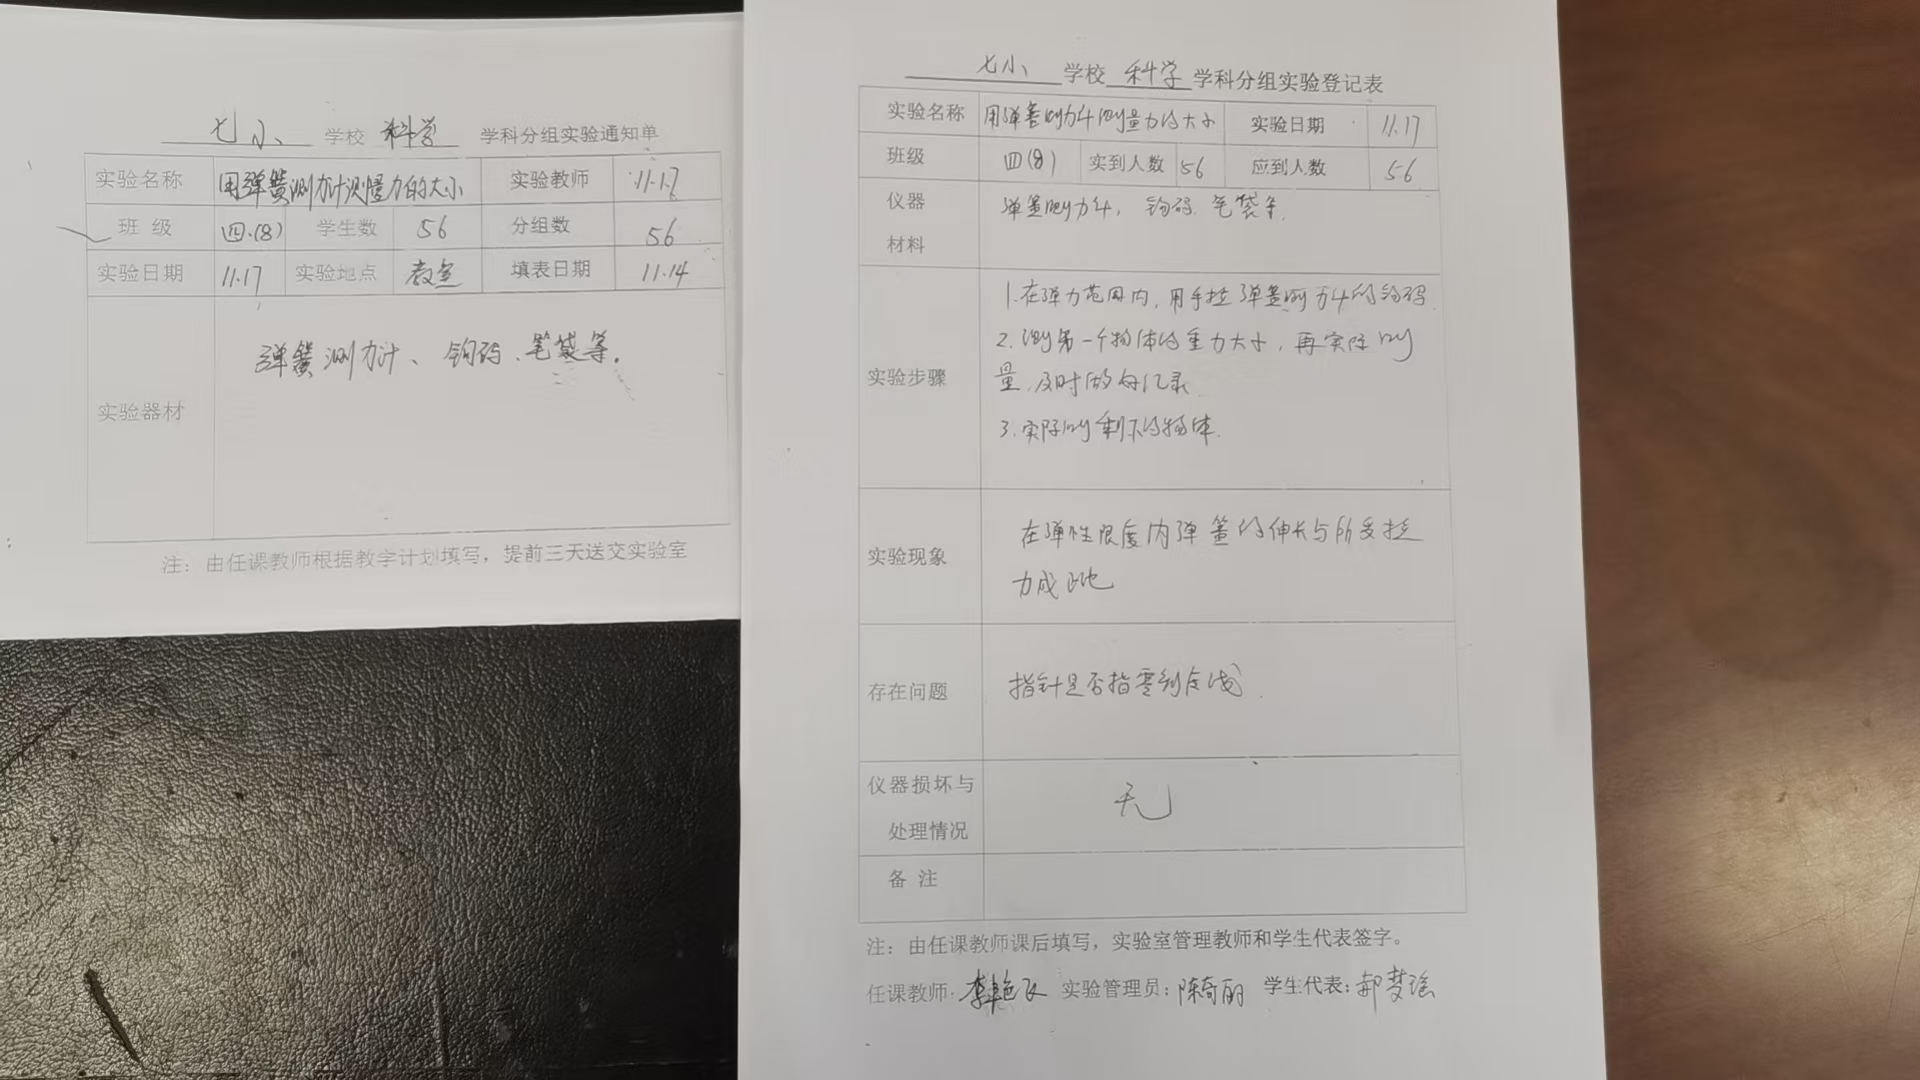 七小 学校 科学 学科分组实验通知单
实验名称 用弹簧测力计测量力的大小 实验教师 11.17
班 级 四.(8) 学生数 56 分组数 56
实验日期 11.17 实验地点 教室 填表日期 11.14
实验器材 弹簧测力计、钩码、笔袋等。
注：由任课教师根据教学计划填写，提前三天送交实验室
七小 学校 科学 学科分组实验登记表
实验名称 用弹簧测力计测量力的大小 实验日期 11.17
班级 四(8) 实到人数 56 应到人数 56
仪器 弹簧测力计，钩码、笔袋等.
材料
1.在弹力范围内，用手拉弹簧测力计的钩码
2.测第一个物体的重力大小，再实际测
实验步骤 量，及时做好记录
3.实际测剩下的物体.
在弹性限度内弹簧的伸长与所受拉
实验现象 力成正比
存在问题 指针是否指零刻度线.
仪器损坏与 无
处理情况
备 注
注：由任课教师课后填写，实验室管理教师和学生代表签字。
任课教师: 李艳飞 实验管理员：陈奇丽 学生代表：郝梦瑶